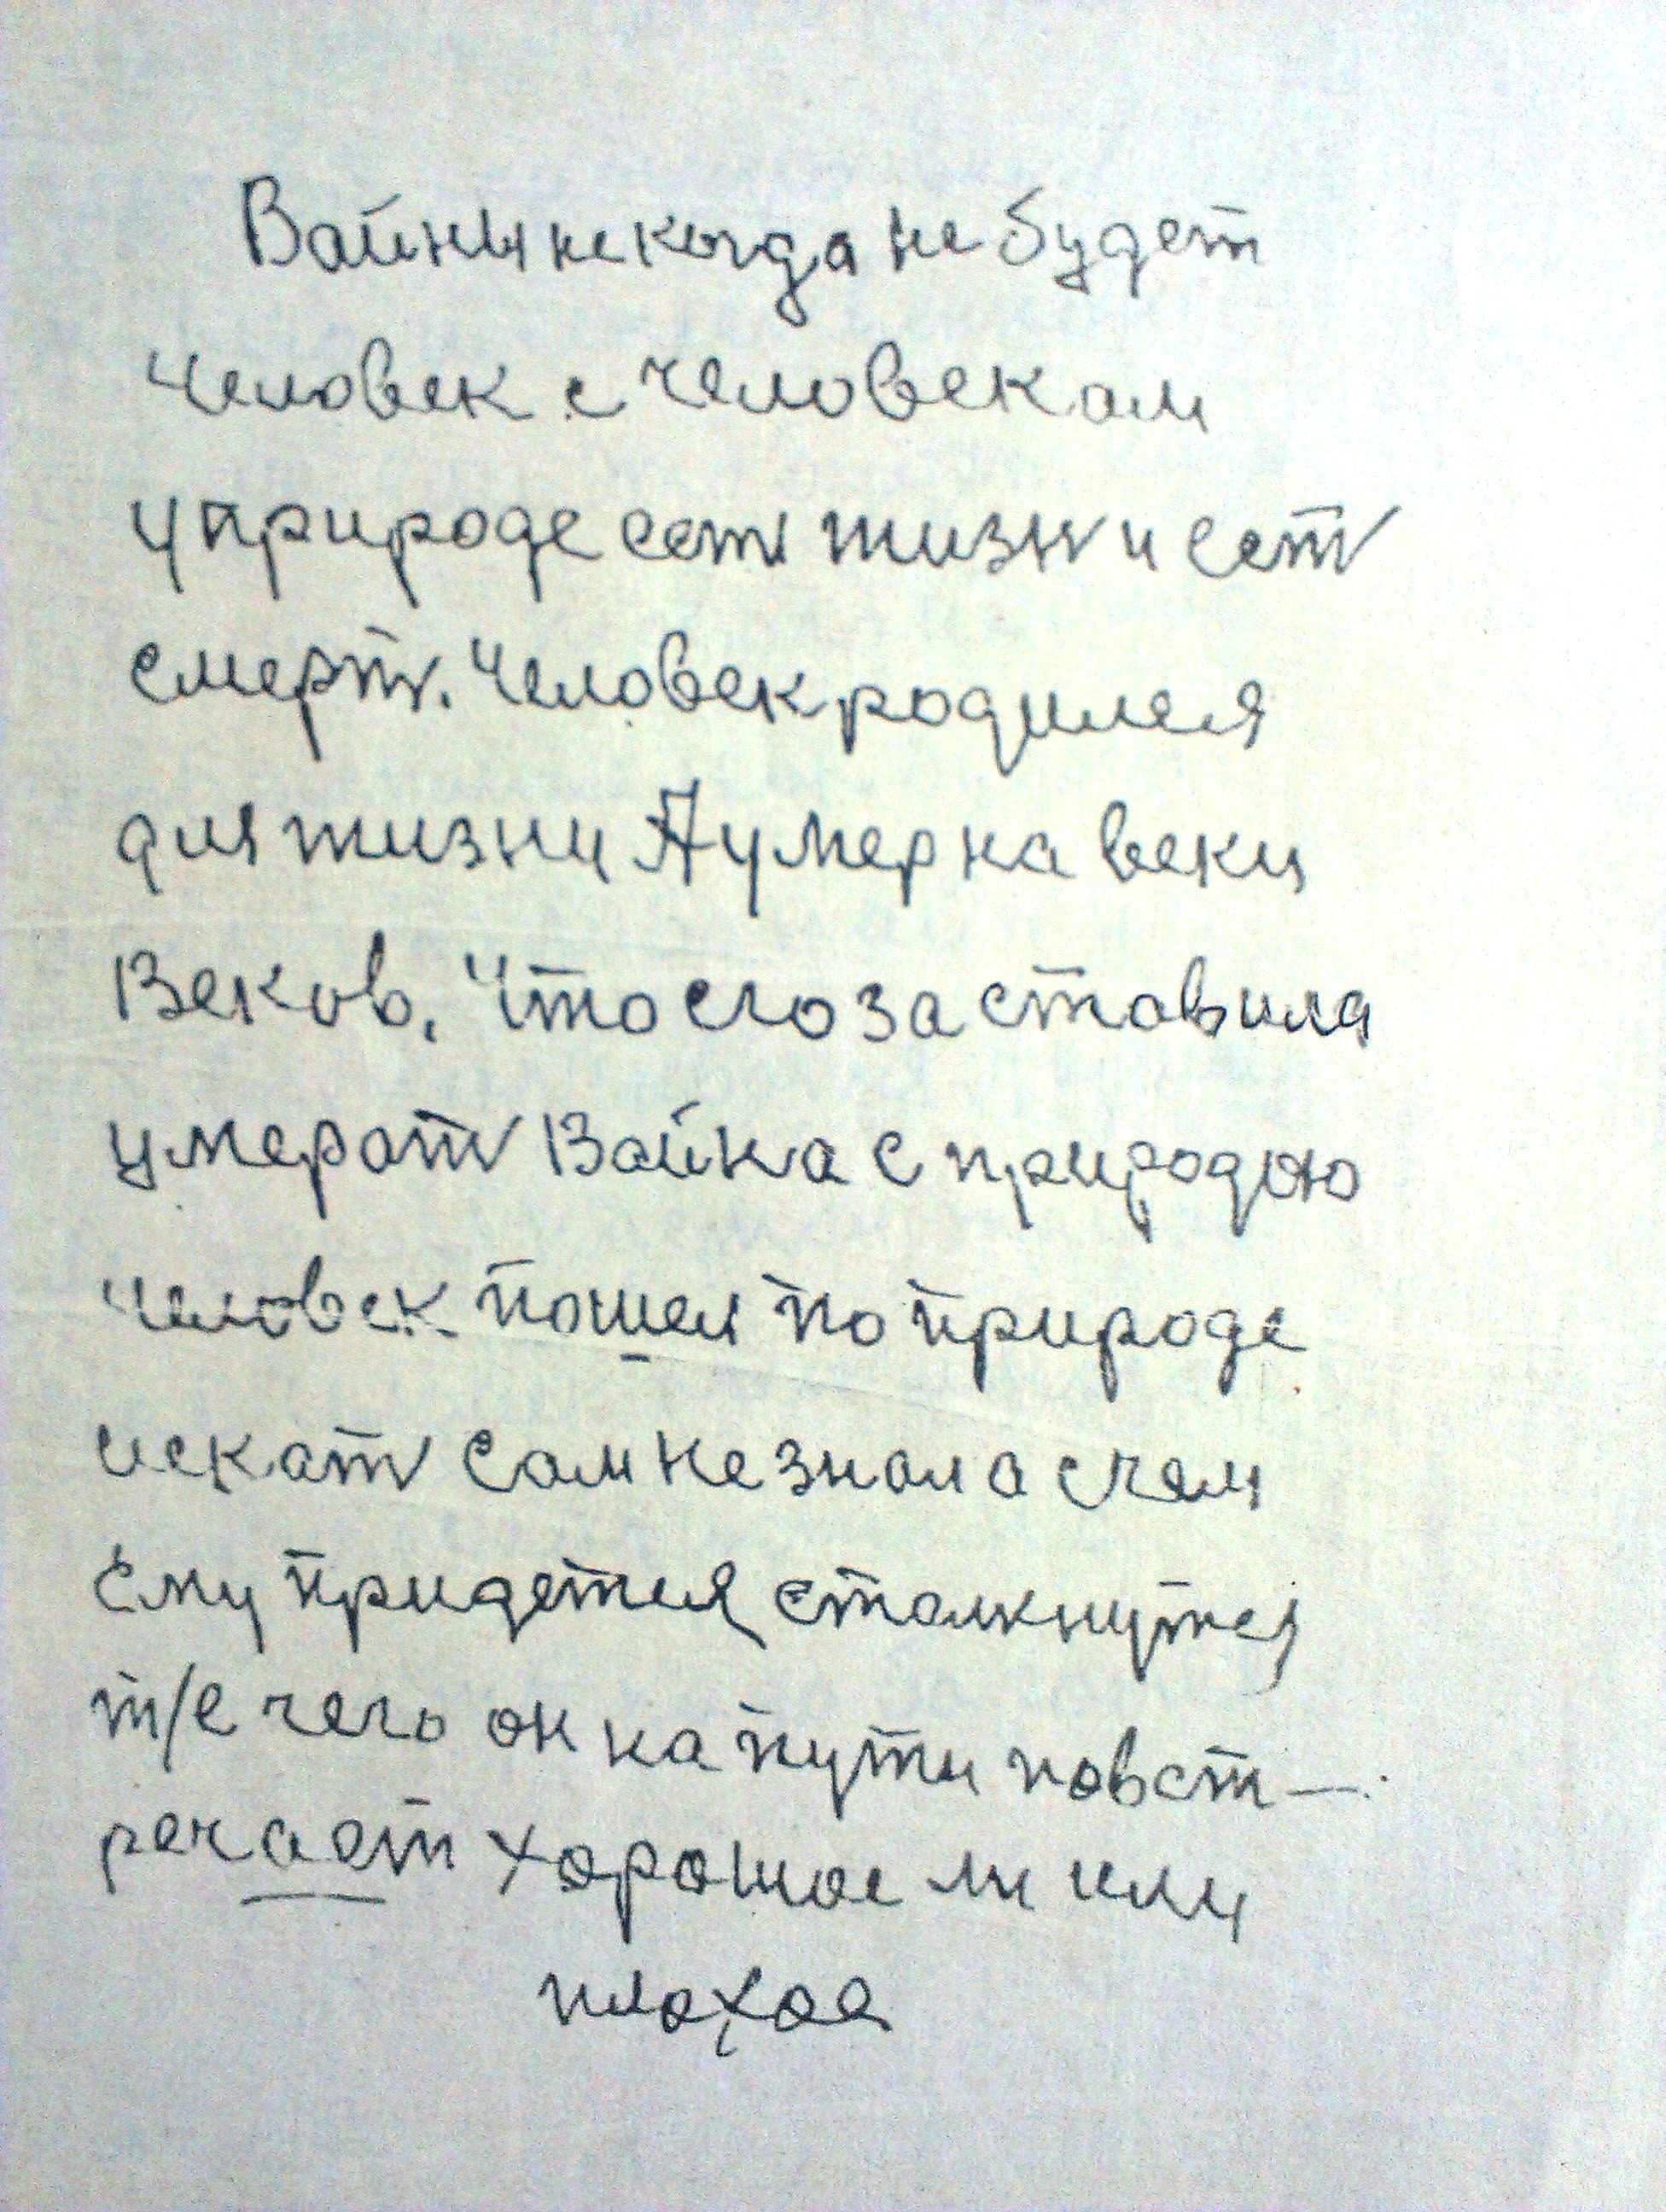 Вайны некогда не будет
человек с человекам
у природе есть жизнь и есть
смерть. Человек родился
для жизни А умер на веки
Веков. Что его заставила
умерать Вайна с природою
человек пошел по природе
искать сам не знал а с чем
Ему придется столкнутся
т/е чего он на пути повст—
речает хорошое ли или
плохое